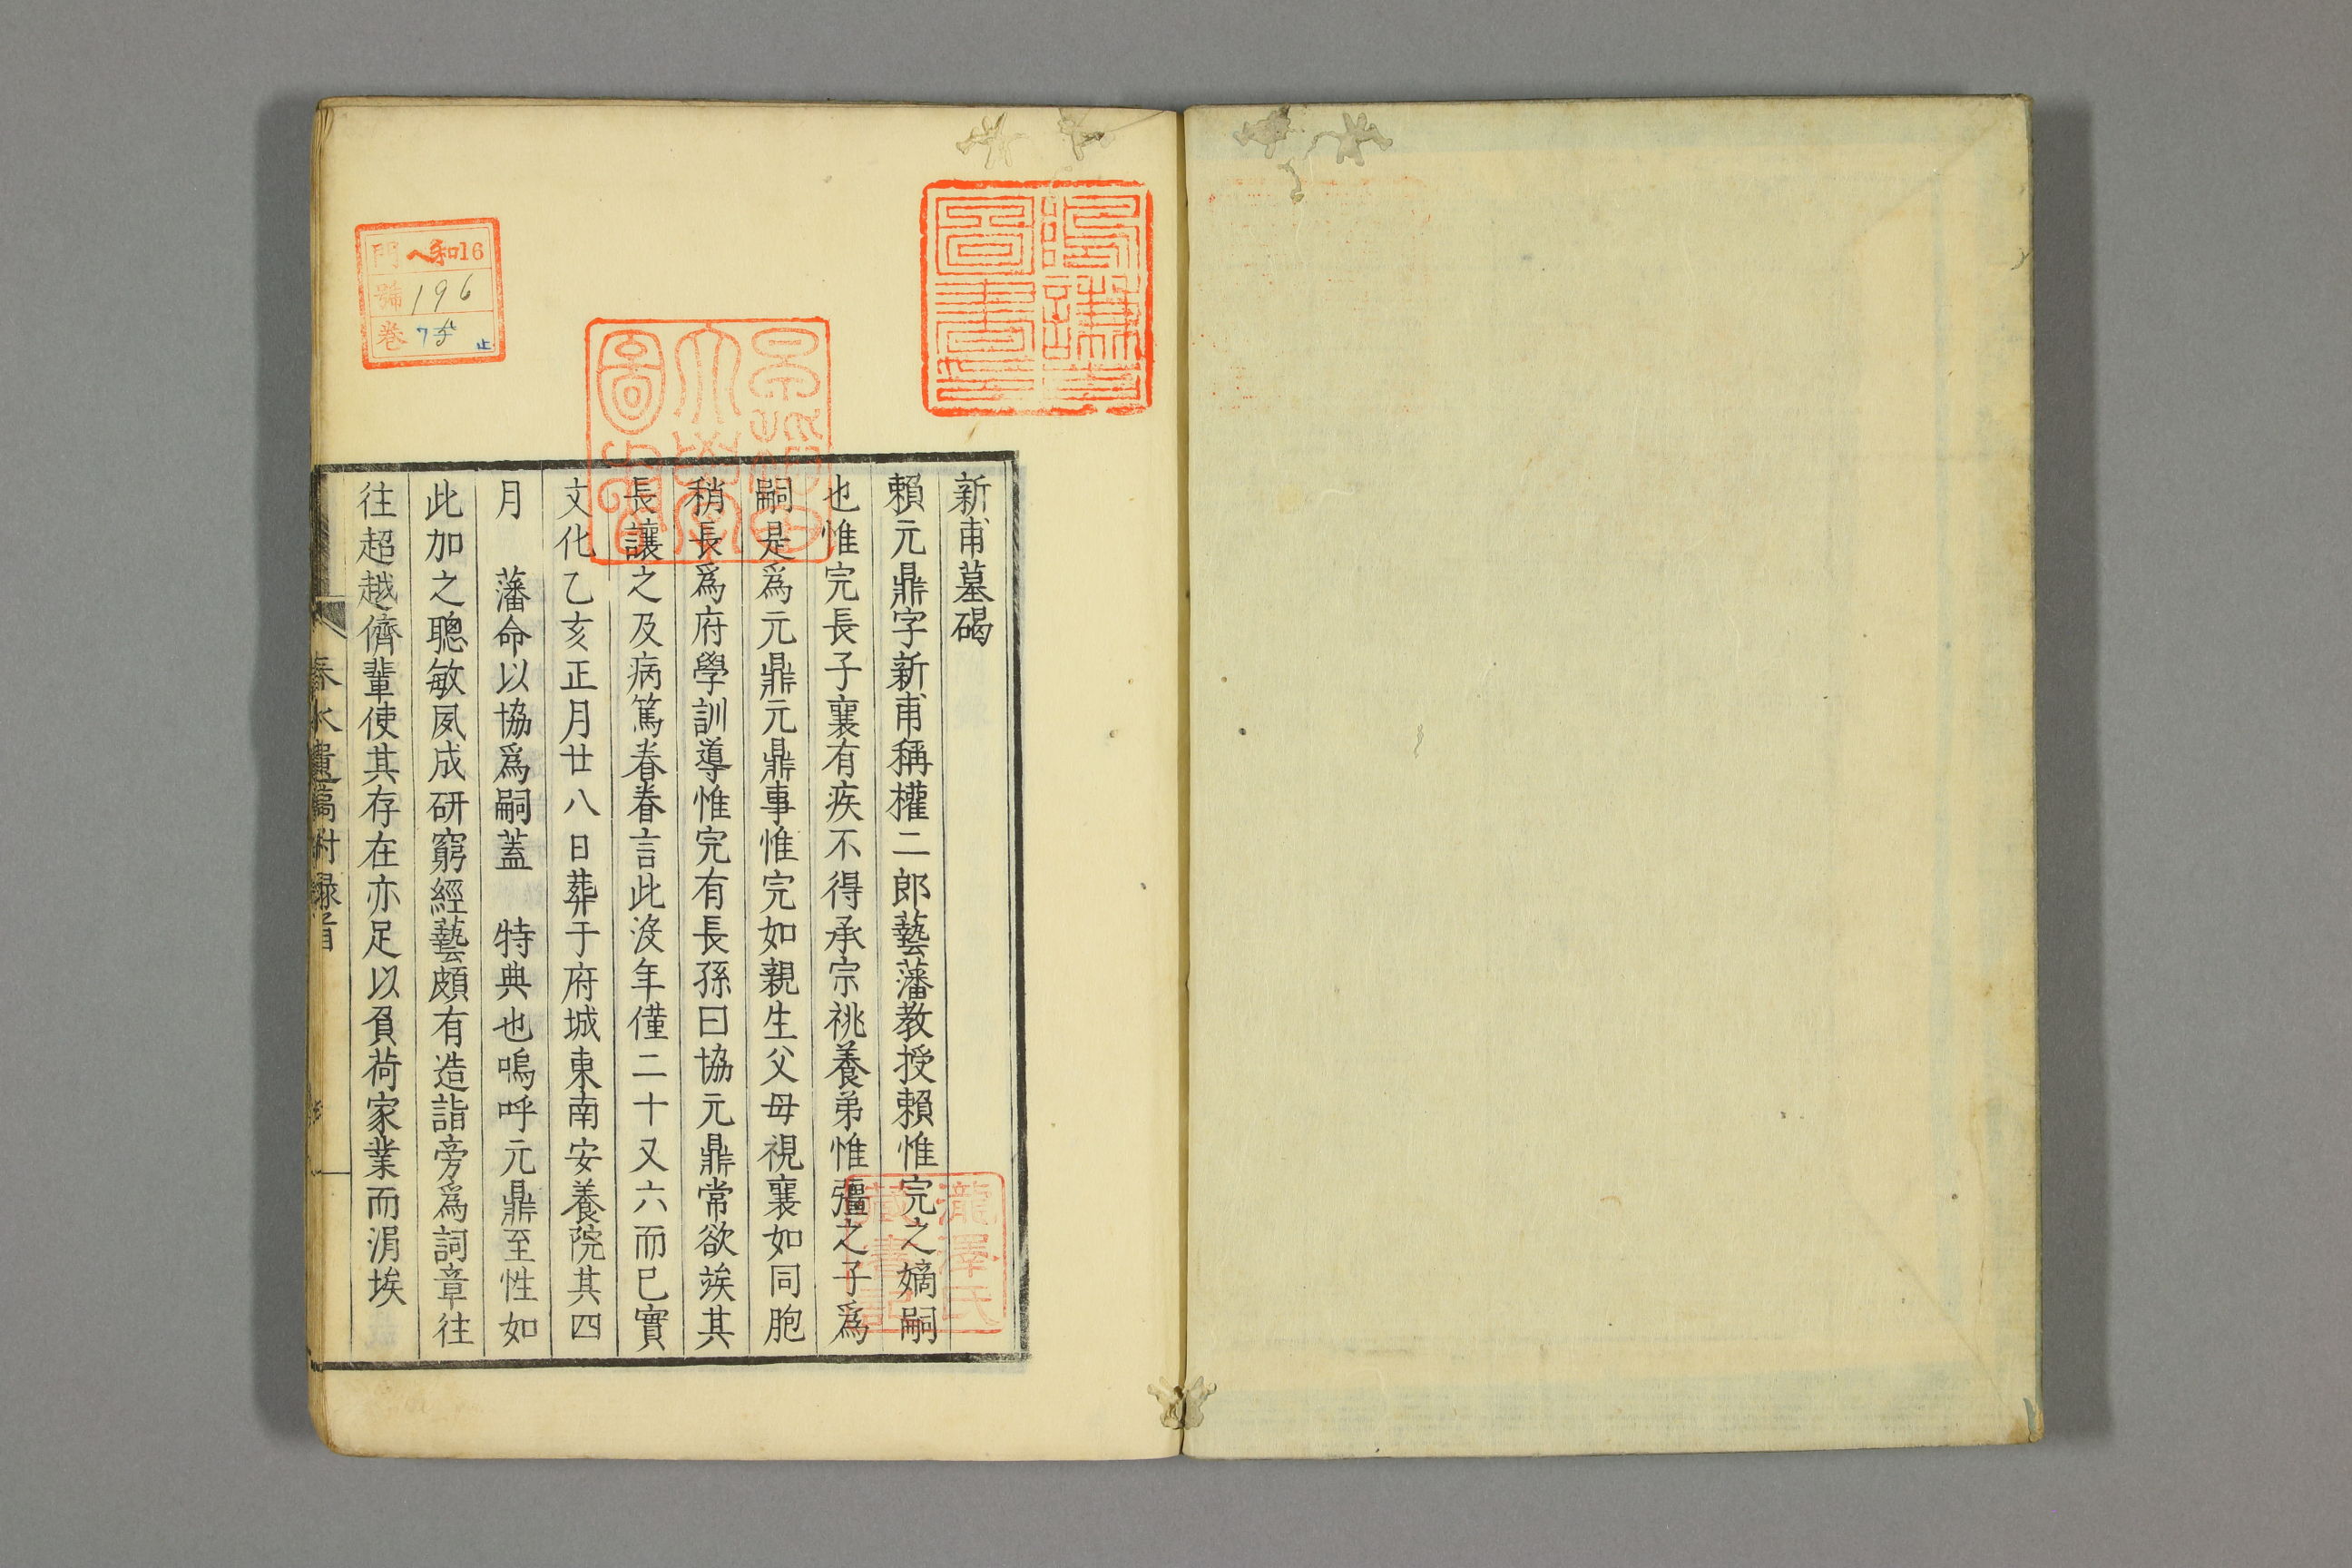 新甫墓碣
賴元鼎字新甫稱權二郎藝藩教授賴惟完之嫡嗣
也惟完長子襄有疾不得承宗祧養弟惟彊之子爲
嗣是爲元鼎元鼎事惟完如親生父母視襄如同胞
稍長爲府學訓導惟完有長孫曰協元鼎常欲竢其
長讓之及病篤眷眷言此沒年僅二十又六而已實
文化乙亥正月廿八日葬于府城東南安養院其四
月　藩命以協爲嗣蓋　特典也嗚呼元鼎至性如
此加之聰敏夙成研窮經藝頗有造詣旁爲詞章往
往超越儕輩使其存在亦足以負荷家業而涓埃
春水遺稿附録
門 ヘ和16
號 196
卷 7
止
瀧澤氏
藏書記
圖書